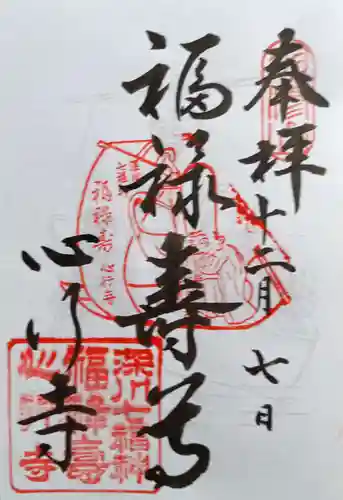 奉拝
十二月七日
福禄寿尊
心行寺
福禄寿
心行寺
深川七福神
福禄寿
心行寺